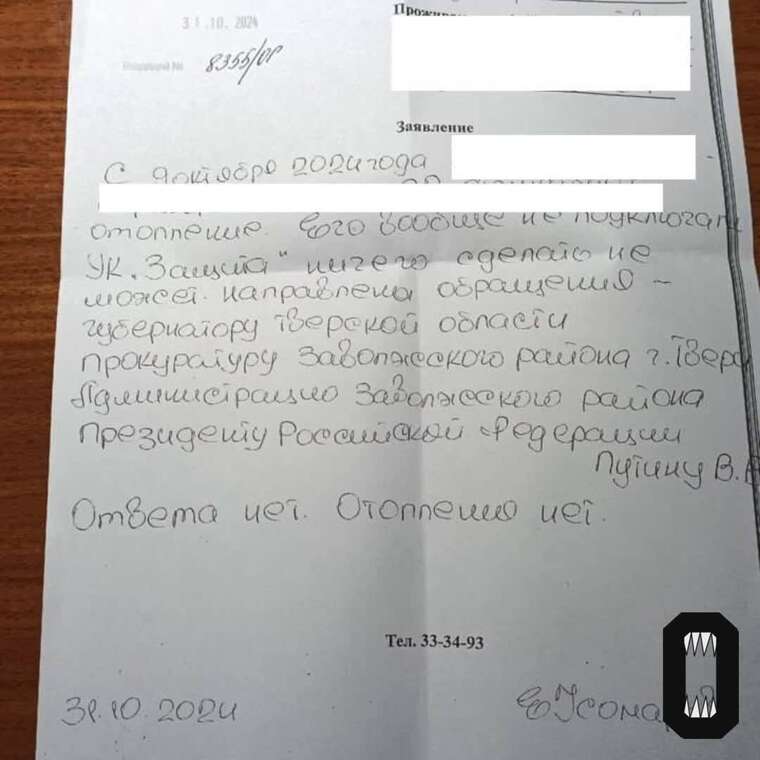 31.10.2024
Входящий № 8355/ОР
Заявление
С 9 октября 2024 года
отопление. Его вообще не подключали
УК "Защита" ничего сделать не
может. направлены обращения -
губернатору Тверской области
прокуратуру Заволжского района г. Твери
Администрацию Заволжского района
Президенту Российской Федерации
Путину В.В
Ответа нет. Отопления нет.
Тел. 33-34-93
31.10.2024